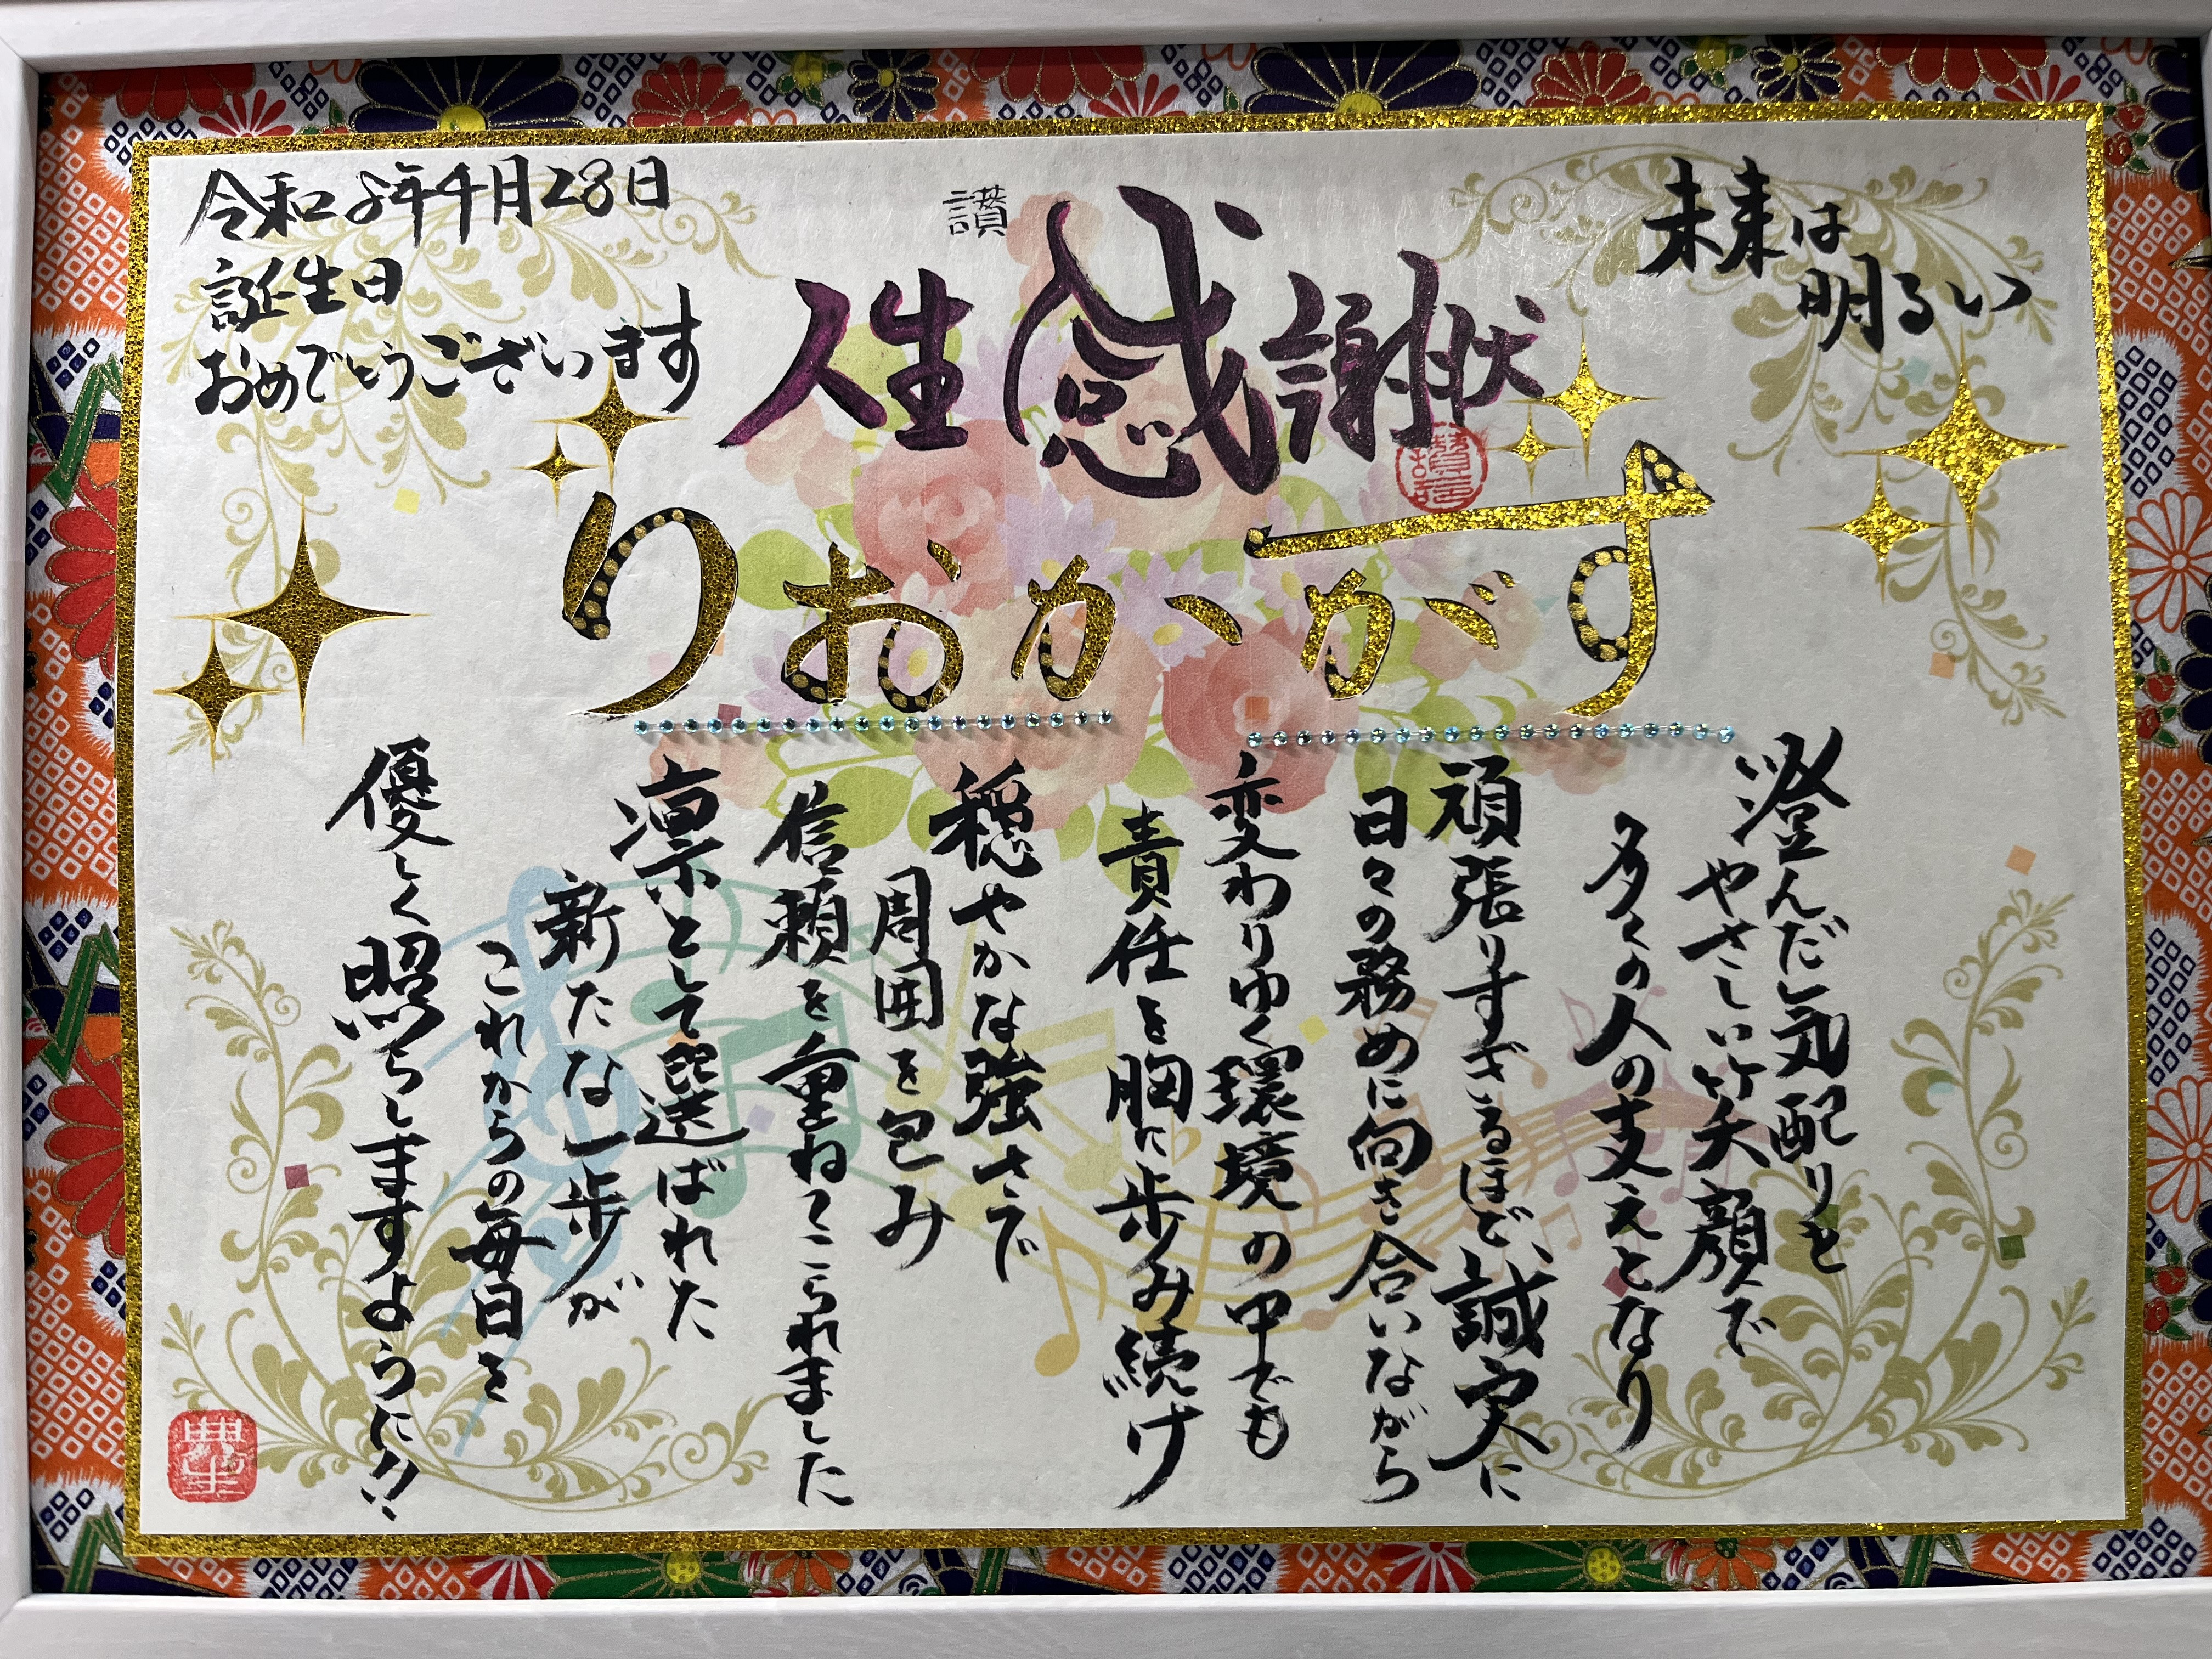 未来は
明るい
讃
人生感謝状
令和8年4月28日
誕生日
おめでとうございます
りおかがす
澄んだ気配りと
やさしい笑顔で
多くの人の支えとなり
頑張りすぎるほど、誠実に
日々の務めに向き合いながら
変わりゆく環境の中でも
責任を胸に歩み続け
穏やかな強さで
周囲を包み
信頼を重ねてこられました
凛として選ばれた
新たな一歩が
これからの毎日を
優しく照らしますように!!